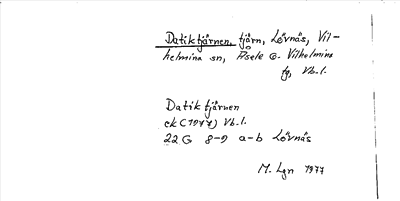 Datiktjärnen, tjärn, Lövnäs, Vil-
helmina sn, Åsele o. Vilhelmina
tg, Vb.l.
Datiktjärnen
ek (1977) Vb.l.
22G 8-9 a-b Lövnäs
M. Lgn 1977